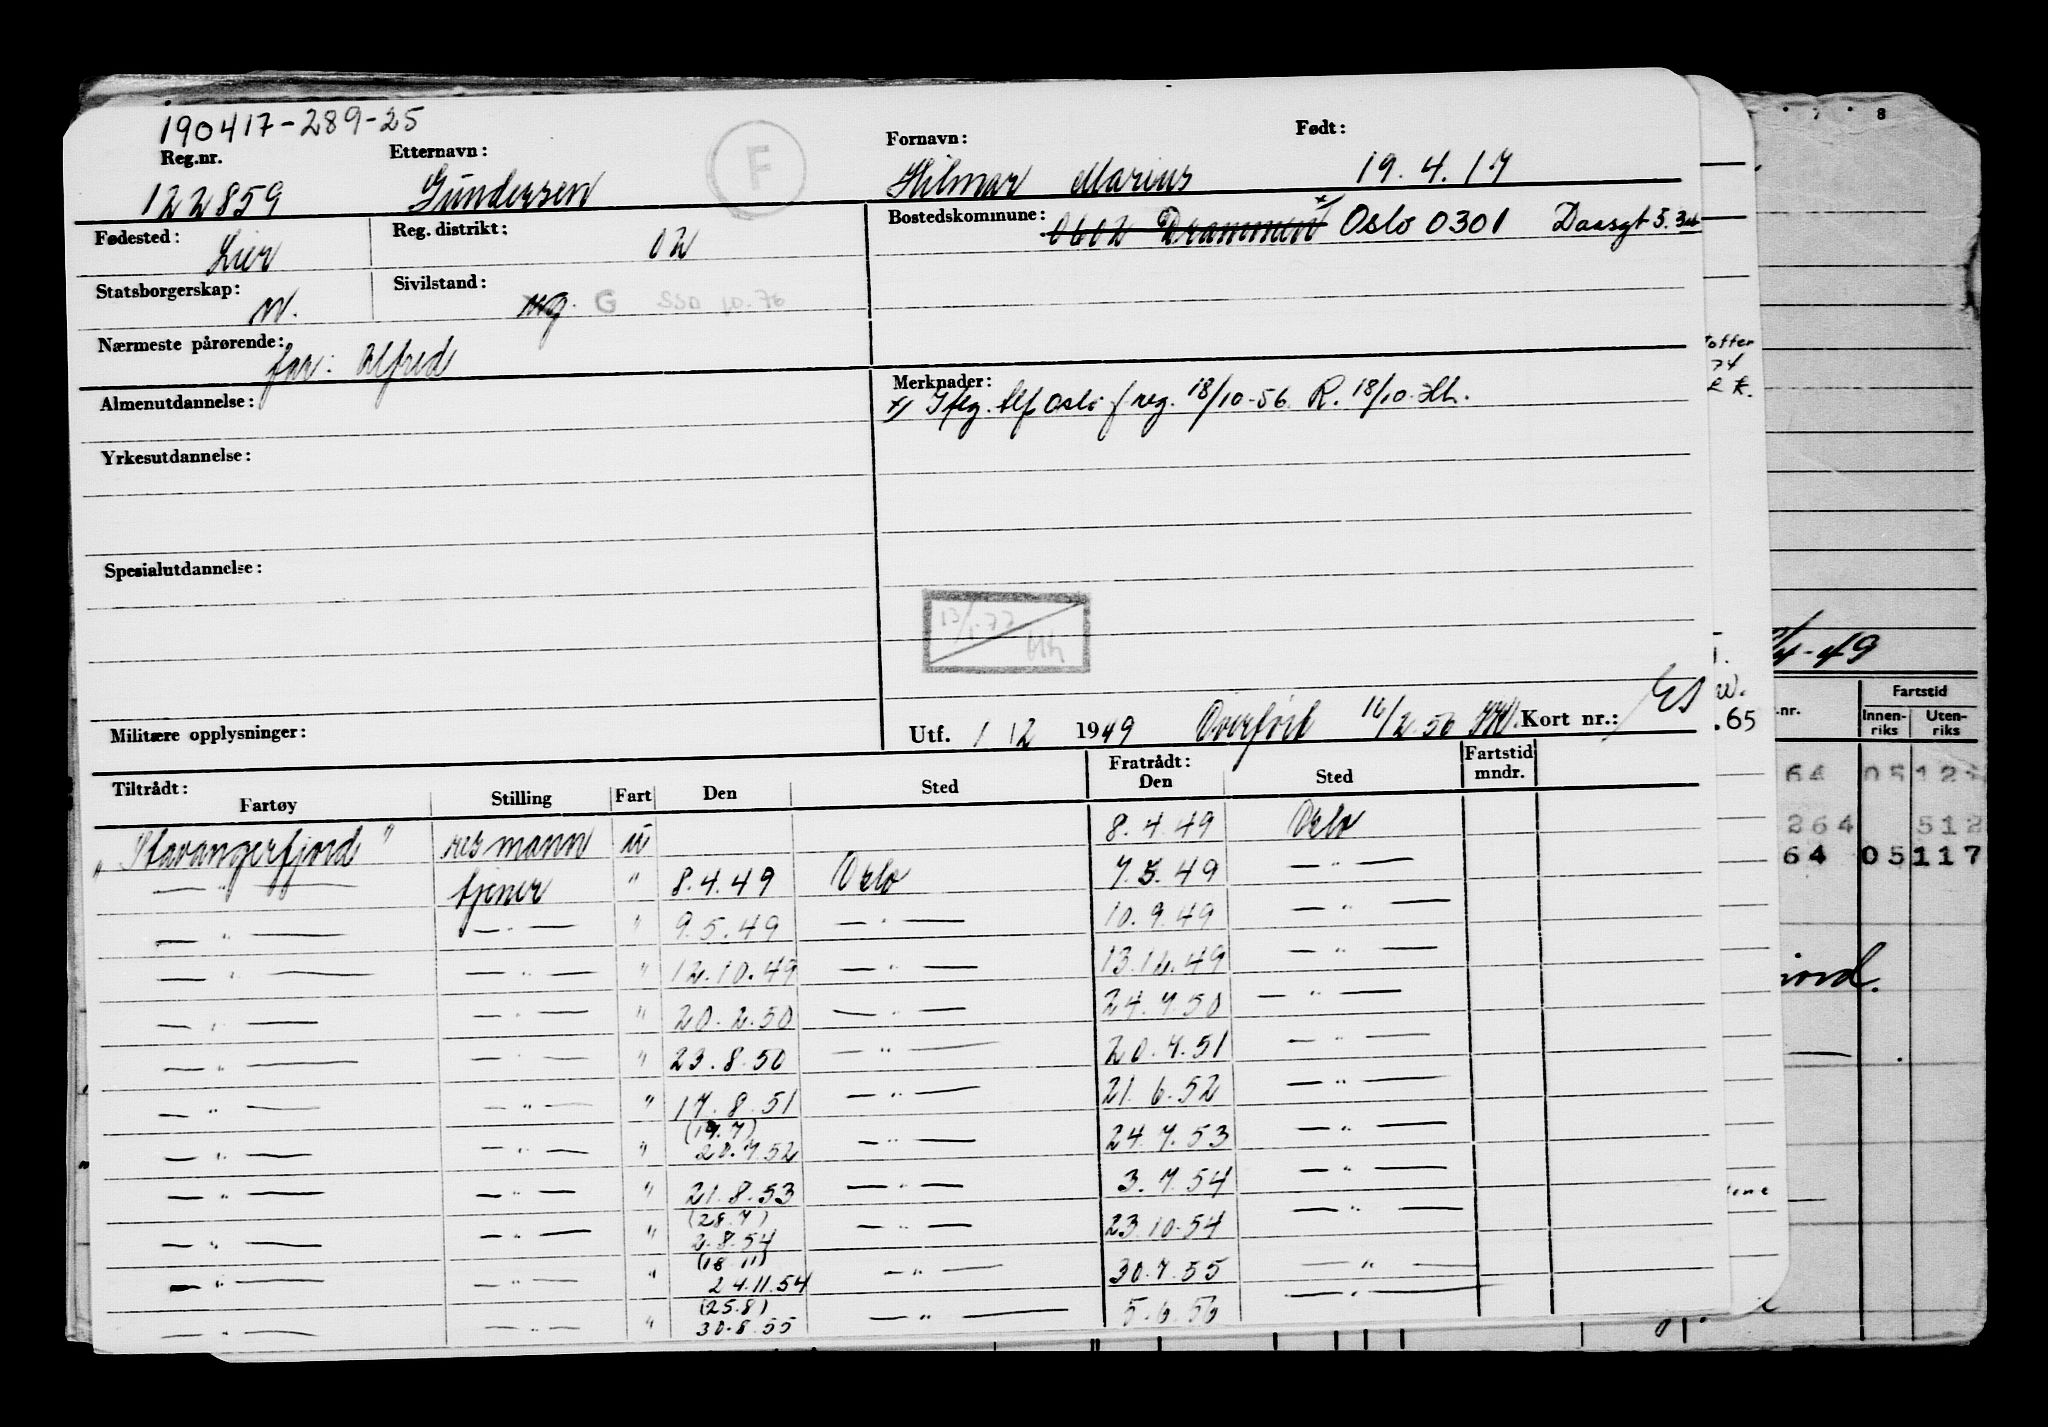 190417-289-25
Reg.nr. Etternavn: Fornavn: Født:
122859 Gundersen F Hilmar Marius 19.4.17
Fødested: Reg. distrikt: Bostedskommune:
Lier 02 0602 Drammen x Oslo 0301 Daasgt 5. 34
Statsborgerskap: Sivilstand:
N. ug. G SSD 10.76
Nærmeste pårørende:
far: Alfred
Almenutdannelse: Merknader:
x) Iflg. tlf Oslo f reg. 18/10-56 R. 18/10 Hh.
Yrkesutdannelse:
Spesialutdannelse:
13/1-77
Hh
Militære opplysninger: Utf. 1 12 1949 Overført 16/2.56 Kort nr.:
Tiltrådt: Fratrådt: Fartstid
Fartøy Stilling Fart Den Sted Den Sted mndr.
"Stavangerfjord" resmann u 8.4.49 Oslo
— " — tjener " 8.4.49 Oslo 7.5.49 — " —
— " — — " — " 9.5.49 — " — 10.9.49 — " —
— " — — " — " 12.10.49 — " — 13.12.49 — " —
— " — — " — " 20.2.50 — " — 24.7.50 — " —
— " — — " — " 23.8.50 — " — 20.7.51 — " —
— " — — " — " 17.8.51 — " — 21.6.52 — " —
(19.7)
— " — — " — " 20.7.52 — " — 24.7.53 — " —
— " — — " — " 21.8.53 — " — 3.7.54 — " —
(28.7)
— " — — " — " 2.8.54 — " — 23.10.54 — " —
(18.11)
— " — — " — " 24.11.54 — " — 30.7.55 — " —
(25.8)
— " — — " — " 30.8.55 — " — 5.6.56 — " —
7 8
74
/4-49
.65
nr. Fartstid
Innen-riks Uten-riks
64 05 12
264 512
64 05 117
jord.